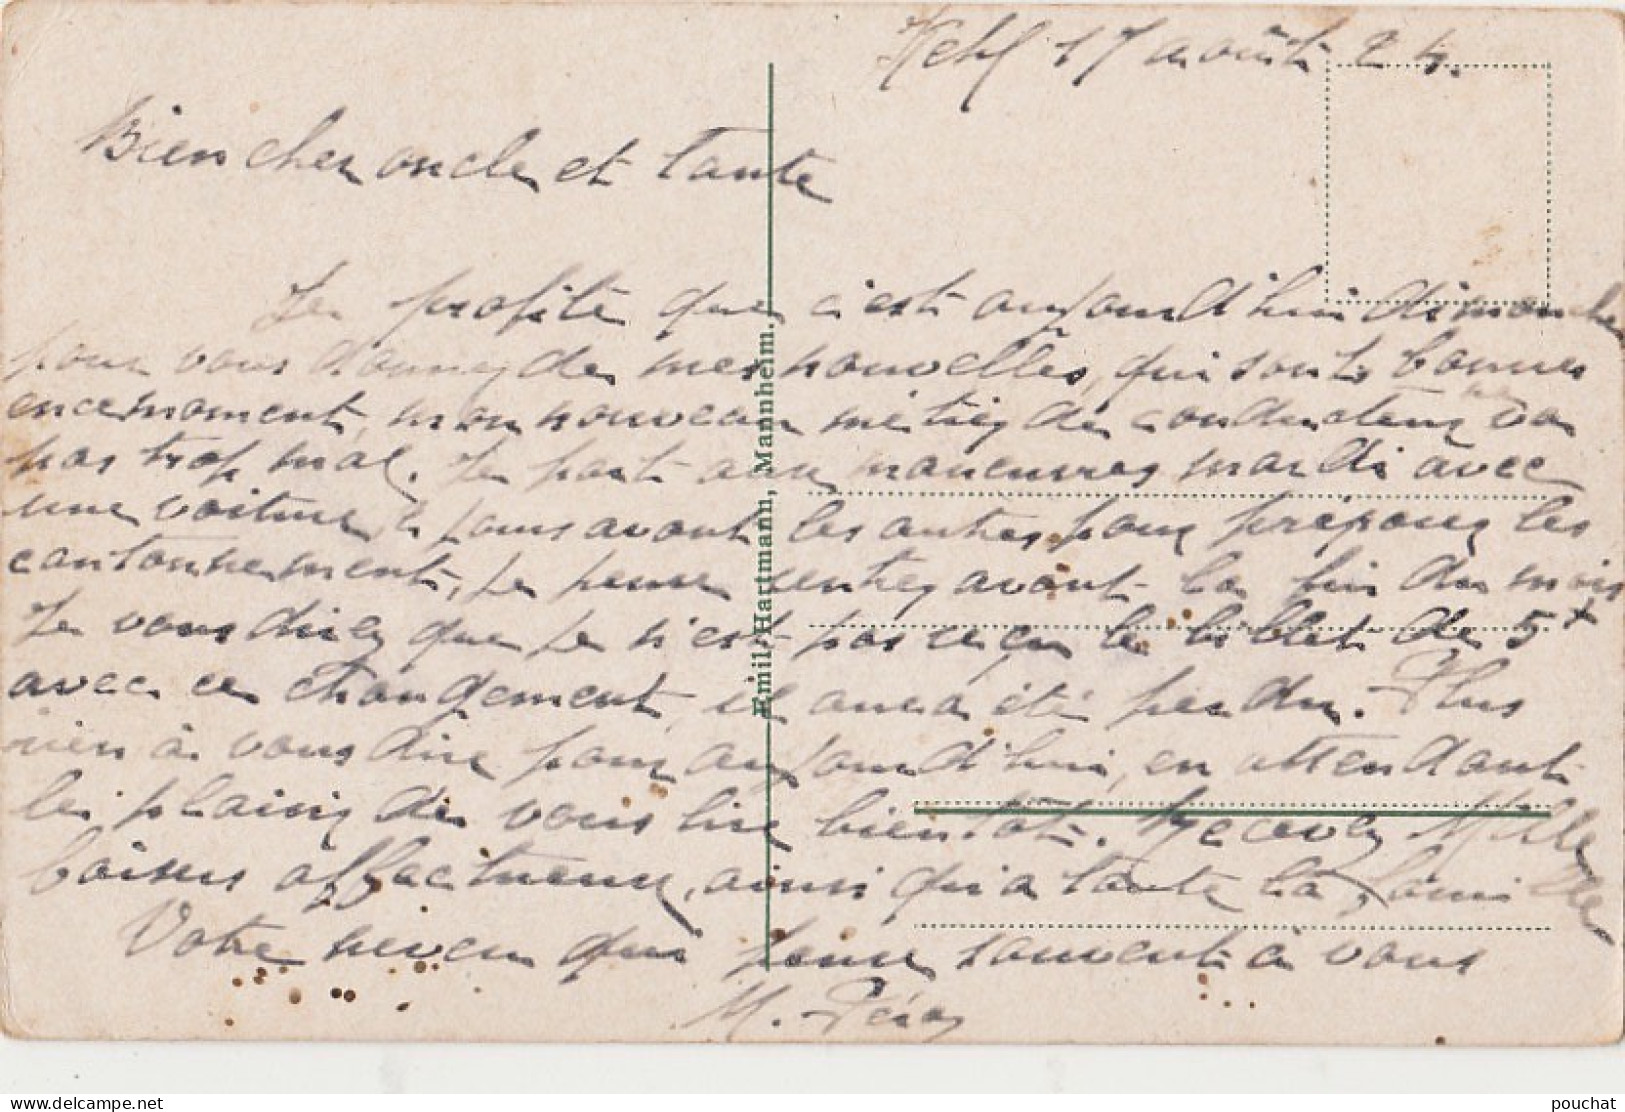 Kehl 17 août 24.
Bien cher oncle et tante
Je profite que c'est aujourd'hui dimanche
pour vous donner de mes nouvelles, qui sont bonnes
en ce moment, mon nouveau métier de conducteur ne va
pas trop mal. Je part aux maneuvres mardi avec
une voiture, jours avant les autres pour préparer les
cantonnement, je pense rentrer avant la fin du mois
Je vous direz que je n'est pas reçu le billet de 5f
avec ce changement, il aura été perdu. Plus
rien à vous dire pour aujourd'hui, en attendant
le plaisir de vous lire bientot. Recevez Mille
baisers affectueux, ainsi qu'a toute la famille
Votre neveu qui pense souvent à vous
M.
Emil Hartmann, Mannheim.
pouchat
delcampe.net